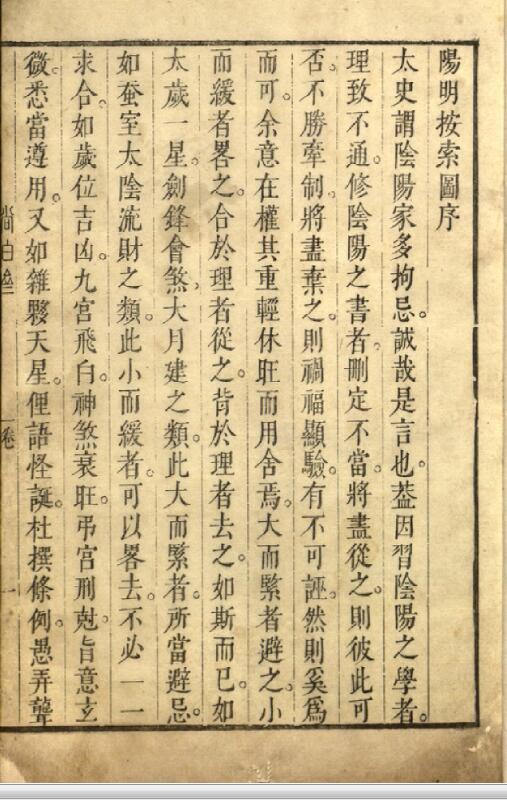 陽明按索圖序
太史謂陰陽家多拘忌。誠哉是言也。葢因習陰陽之學者。
理致不通。修陰陽之書者。刪定不當。將盡從之。則彼此可
否。不勝牽制。將盡棄之。則禍福顯驗。有不可誣。然則奚爲
而可。余意在權其重輕休旺而用舍焉。大而緊者避之。小
而緩者畧之。合於理者從之。背於理者去之。如斯而已。如
太歲一星。劍鋒會煞、大月建之類。此大而緊者。所當避忌。
如蚕室太陰流財之類。此小而緩者。可以畧去。不必一一
求合。如歲位吉凶。九宮飛白。神煞衰旺。弔宮刑尅。旨意玄
微。悉當遵用。又如雜夥天星。俚語怪誕。杜撰條例。愚弄聾
卷
一